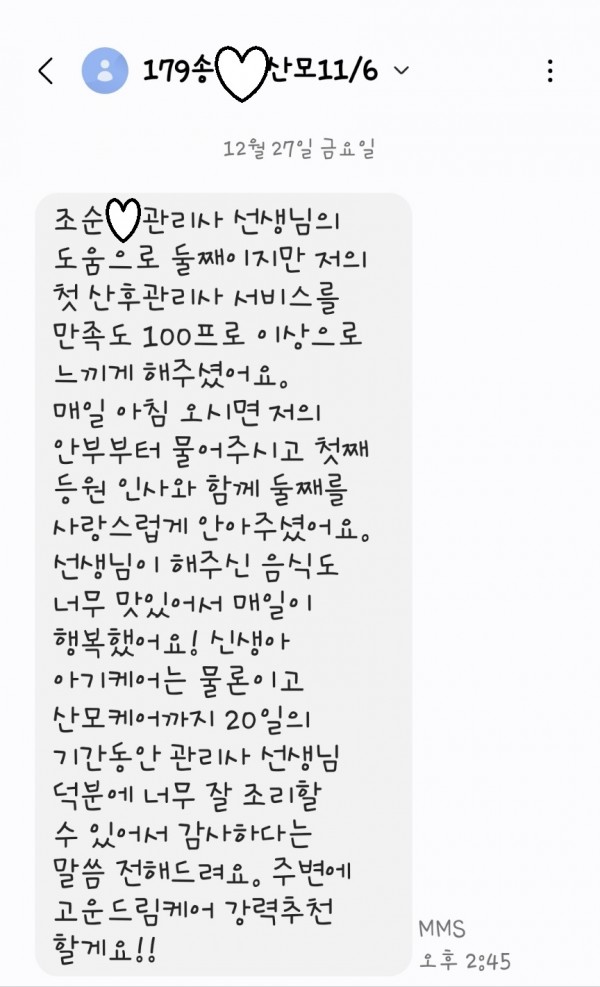 179송 산모11/6
12월 27일 금요일
조순 관리사 선생님의
도움으로 둘째이지만 저의
첫 산후관리사 서비스를
만족도 100프로 이상으로
느끼게 해주셨어요.
매일 아침 오시면 저의
안부부터 물어주시고 첫째
등원 인사와 함께 둘째를
사랑스럽게 안아주셨어요.
선생님이 해주신 음식도
너무 맛있어서 매일이
행복했어요! 신생아
아기케어는 물론이고
산모케어까지 20일의
기간동안 관리사 선생님
덕분에 너무 잘 조리할
수 있어서 감사하다는
말씀 전해드려요. 주변에
고운드림케어 강력추천
할게요!!
MMS
오후 2:45